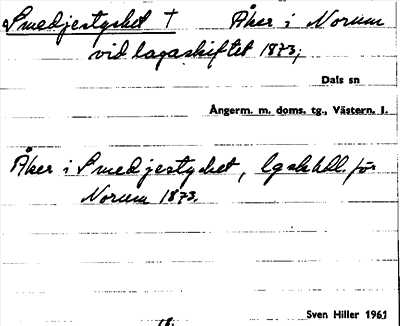 Smedjestycket † Åker i Norum
vid lagaskiftet 1873;
Dals sn
Ångerm. m. doms. tg., Västern. l.
Åker i Smedjestycket, lgskhdl. för
Norum 1873.
Sven Hiller 1961
18.